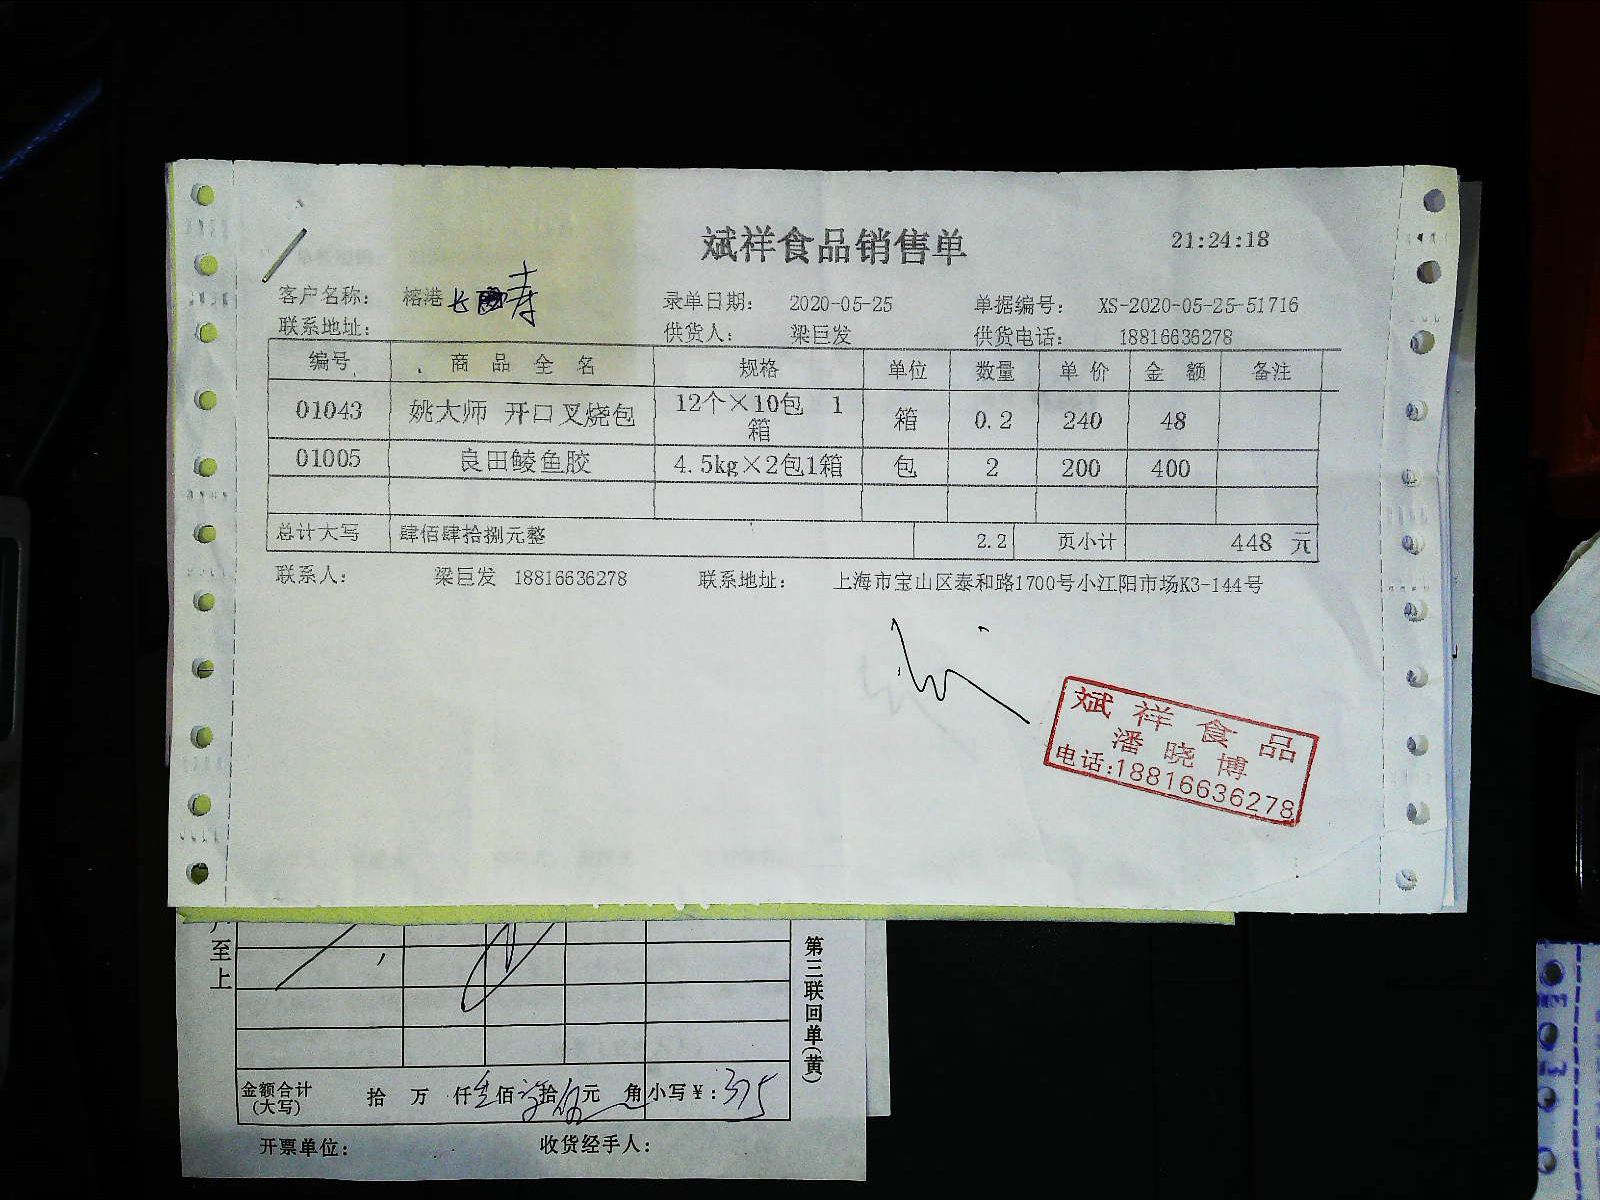 斌祥食品销售单
21:24:18
客户名称: 榕港 长寿 录单日期: 2020-05-25 单据编号: XS-2020-05-25-51716
联系地址: 供货人: 梁巨发 供货电话: 18816636278
编号 商品全名 规格 单位 数量 单价 金额 备注
01043 姚大师 开口叉烧包 12个×10包 1箱 箱 0.2 240 48
01005 良田鲮鱼胶 4.5kg×2包1箱 包 2 200 400
总计大写 肆佰肆拾捌元整 2.2 页小计 448 元
联系人: 梁巨发 18816636278 联系地址: 上海市宝山区泰和路1700号小江阳市场K3-144号
斌祥食品
潘晓博
电话:18816636278
至上
第三联回单(黄)
金额合计(大写) 拾 万 仟 佰 拾 元 角 小写¥: 375
开票单位: 收货经手人: